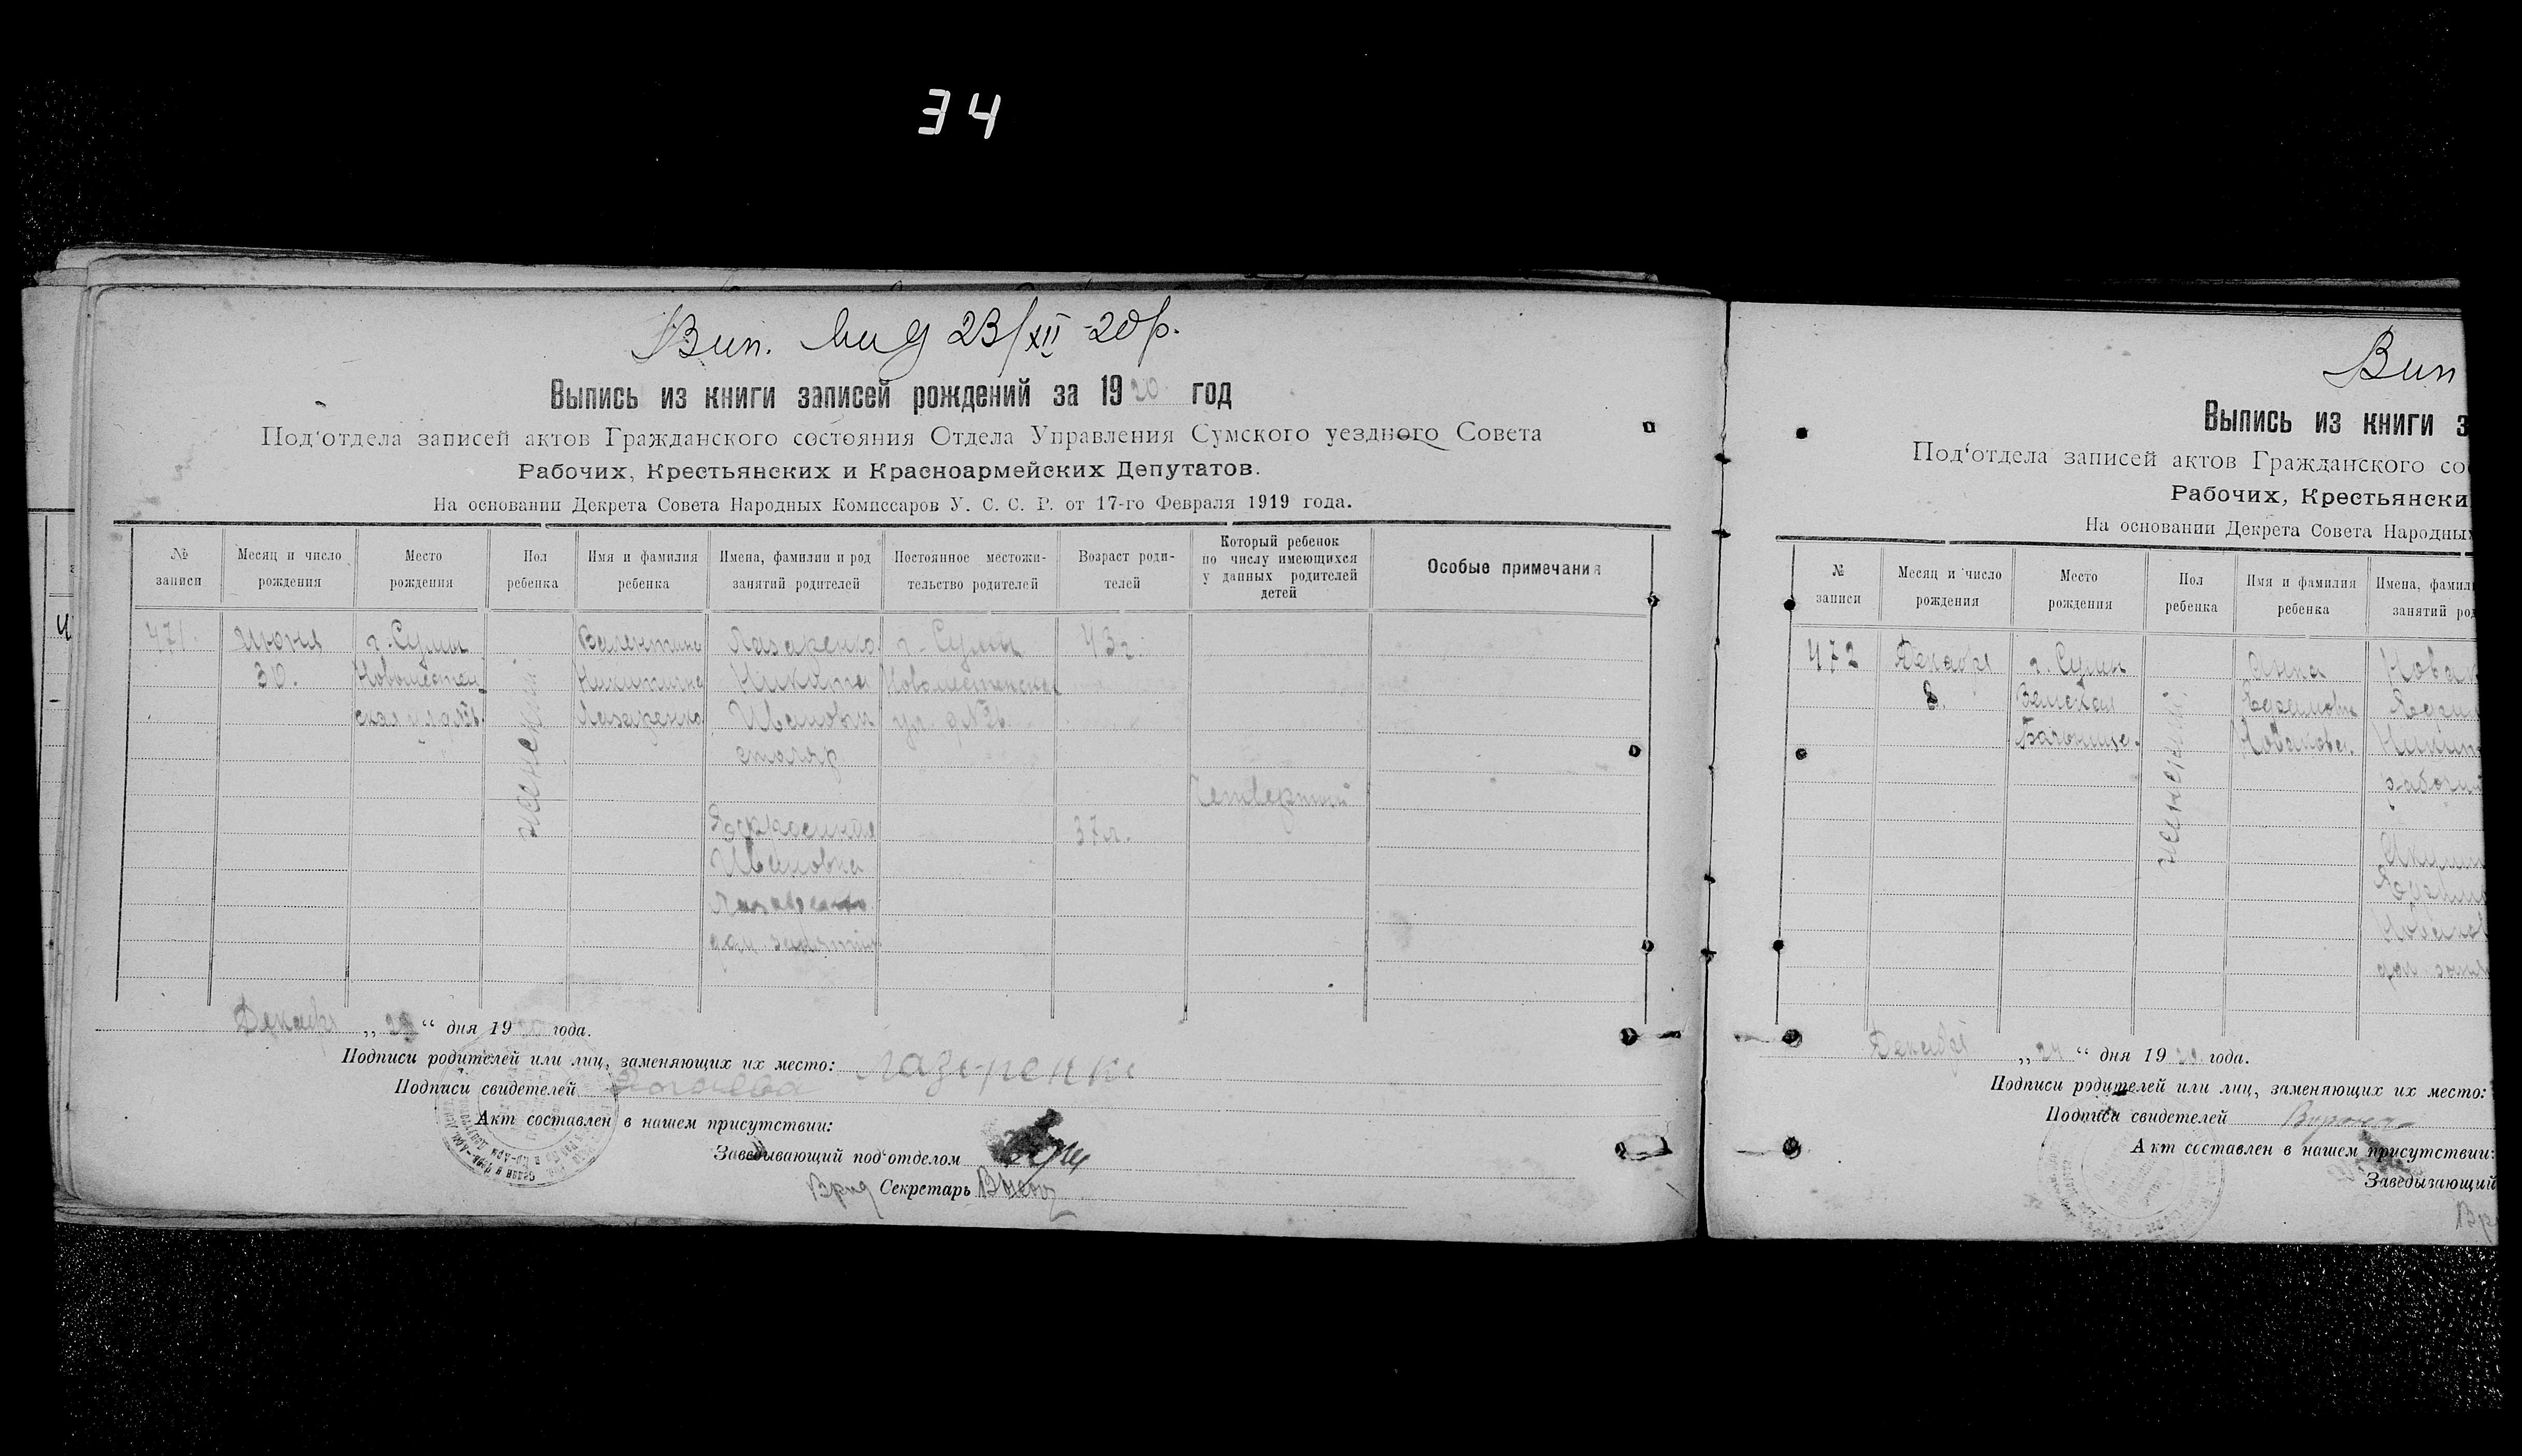 34
Вип. вид 23/XII-20 р.
Выпись из книги записей рождений за 1920 год
Под'отдела записей актов Гражданского состояния Отдела Управления Сумского уездного Совета
Рабочих, Крестьянских и Красноармейских Депутатов.
На основании Декрета Совета Народных Комиссаров У. С. С. Р. от 17-го Февраля 1919 года.
№ записи
Месяц и число рождения
Место рождения
Пол ребенка
Имя и фамилия ребенка
Имена, фамилии и род занятий родителей
Постоянное местожительство родителей
Возраст родителей
Который ребенок по числу имеющихся у данных родителей детей
Особые примечания
471.
Июня
30.
г. Сумы
женский
Валентина
Никитична
Лазаренко
Лазаренко
Никита
Иванович
столяр
Ивановна
Лазаренко
дом. занятия
г. Сумы
43 г.
37 л.
Четвертый
Декабр „23“ дня 1920 года.
Подписи родителей или лиц, заменяющих их место: Лазаренко
Подписи свидетелей
Акт составлен в нашем присутствии:
Заведывающий под'отделом
Врид Секретарь
Вип
Выпись из книги з
Под'отдела записей актов Гражданского со
Рабочих, Крестьянски
На основании Декрета Совета Народны
№ записи
Месяц и число рождения
Место рождения
Пол ребенка
Имя и фамилия ребенка
Имена, фамил
занятий род
472
Декабря
8.
г. Сумы
Земская
Больница.
женский
Анна
Новакова.
Новак
Никит
рабочий
Новаков
дом. заня
Декабря „24“ дня 1920 года.
Подписи родителей или лиц, заменяющих их место:
Подписи свидетелей
Акт составлен в нашем присутствии:
Заведывающий
Вр